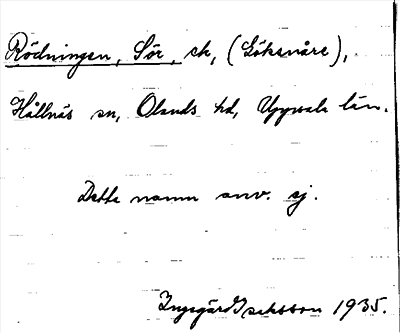 Rödningen, Sör, sk, (Söksnåre),
Hållnäs sn, Olands hd, Uppsala län.
Detta namn anv. ej.
Ingegärd Isaksson 1935.